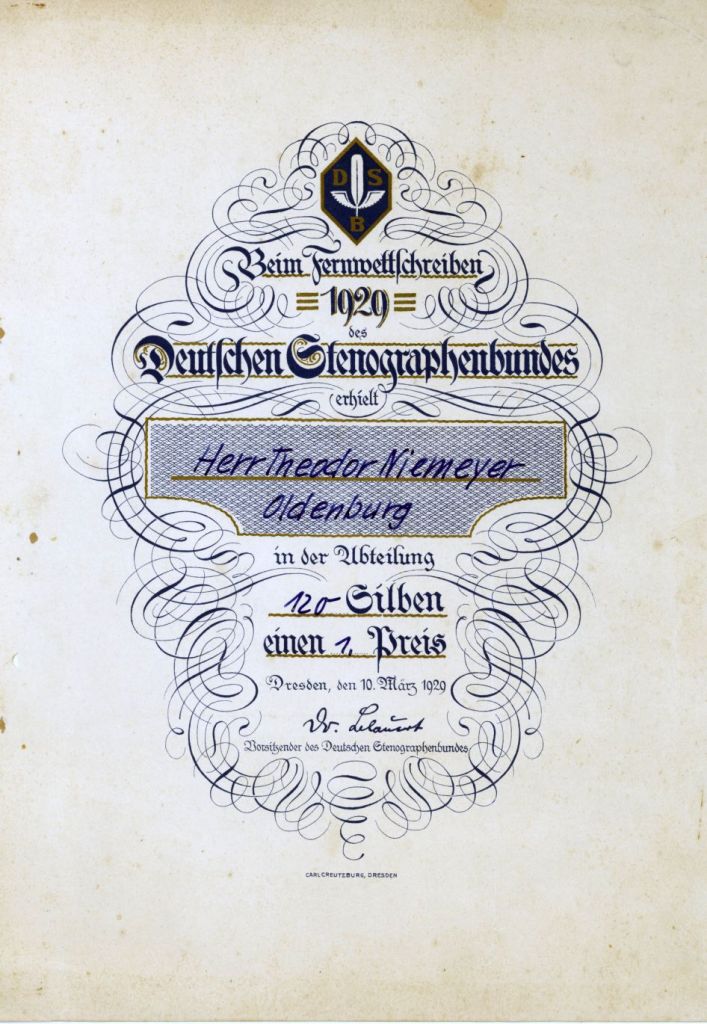 D S
B
Beim Fernwettschreiben
1929
des
Deutschen Stenographenbundes
erhielt
Herr Theodor Niemeyer
Oldenburg
in der Abteilung
120 Silben
einen 1. Preis
Dresden, den 10. März 1929
Dr.
Vorsitzender des Deutschen Stenographenbundes
CARL CREUTZBURG, DRESDEN